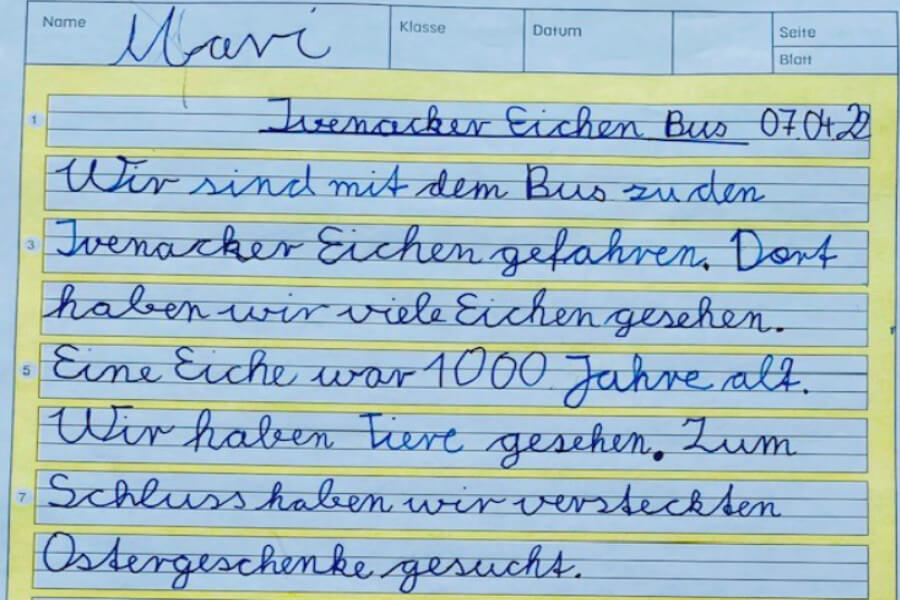 Name Mavi Klasse Datum Seite
Blatt
1 Ivenacker Eichen Bus 07.04.22
Wir sind mit dem Bus zu den
3 Ivenacker Eichen gefahren. Dort
haben wir viele Eichen gesehen.
5 Eine Eiche war 1000 Jahre alt.
Wir haben Tiere gesehen. Zum
7 Schluss haben wir versteckten
Ostergeschenke gesucht.